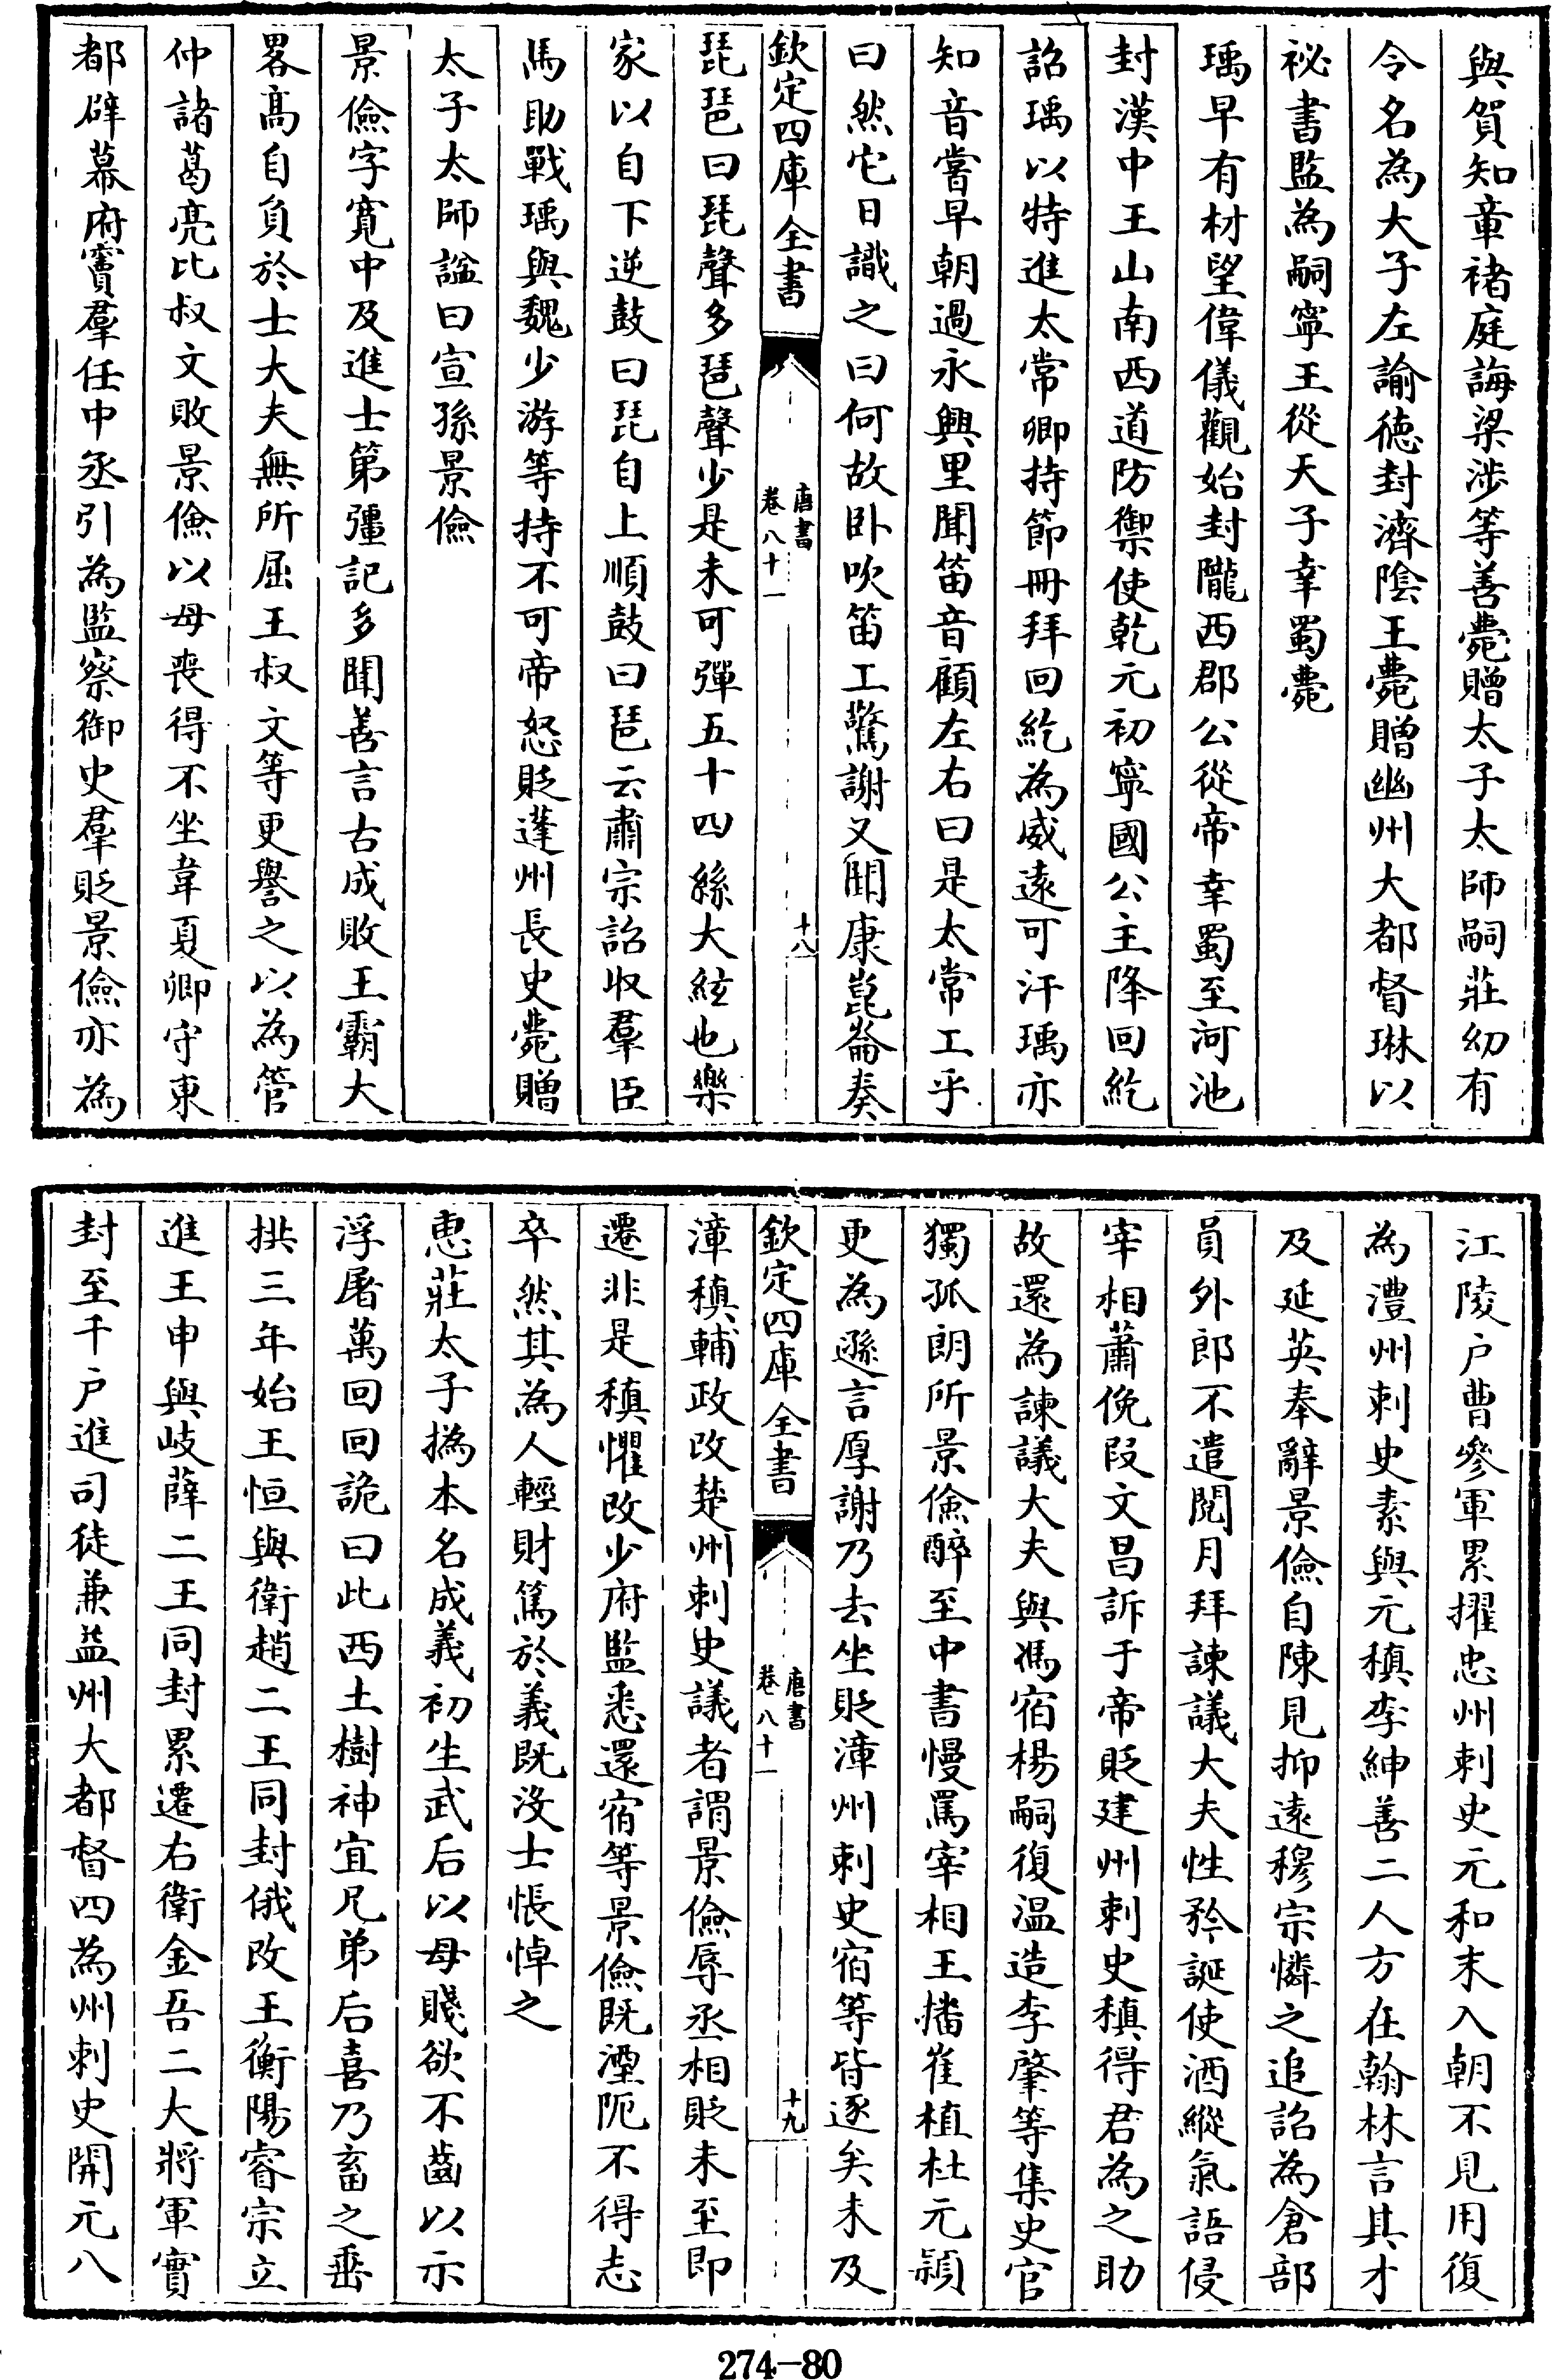 與賀知章褚庭誨梁涉等善薨贈太子太師嗣莊幼有
令名為大子左諭徳封濟隂王薨贈幽州大都督琳以
祕書監為嗣寧王從天子幸蜀薨
瑀早有材望偉儀觀始封隴西郡公從帝幸蜀至河池
封漢中王山南西道防禦使乾元初寜國公主降回紇
詔瑀以特進太常卿持節冊拜回紇為威逺可汗瑀亦
知音嘗早朝過永興里聞笛音顧左右曰是太常工乎
曰然它日識之曰何故卧吹笛工驚謝又聞康崑崙奏
欽定四庫全書
唐書
卷八十一
十八
琵琶曰琵聲多琶聲少是未可彈五十四絲大絃也樂
家以自下逆鼓曰琵自上順鼓曰琶云肅宗詔收羣臣
馬助戰瑀與魏少游等持不可帝怒貶蓬州長史薨贈
太子太師諡曰宣孫景儉
景儉字寛中及進士第彊記多聞善言古成敗王霸大
畧髙自負於士大夫無所屈王叔文等更譽之以為管
仲諸葛亮比叔文敗景儉以母喪得不坐韋夏卿守東
都辟幕府竇羣任中丞引為監察御史羣貶景儉亦為
江陵户曹參軍累擢忠州刺史元和末入朝不見用復
為澧州刺史素與元稹李紳善二人方在翰林言其才
及延英奉辭景儉自陳見抑逺穆宗憐之追詔為倉部
員外郎不遣閱月拜諫議大夫性矜誕使酒縱氣語侵
宰相蕭俛段文昌訴于帝貶建州刺史稹得君為之助
故還為諫議大夫與馮宿楊嗣復温造李肇等集史官
獨孤朗所景儉醉至中書慢罵宰相王播崔植杜元頴
更為遜言厚謝乃去坐貶漳州刺史宿等皆逐矣未及
欽定四庫全書
唐書
卷八十一
十九
漳稹輔政改楚州刺史議者謂景儉辱丞相貶未至即
遷非是稹懼改少府監悉還宿等景儉既湮阨不得志
卒然其為人輕財篤於義既沒士悵悼之
恵莊太子撝本名成義初生武后以母賤欲不齒以示
浮屠萬回回詭曰此西土樹神宜兄弟后喜乃畜之垂
拱三年始王恒與衛趙二王同封俄改王衡陽睿宗立
進王申與岐薛二王同封累遷右衛金吾二大將軍實
封至千户進司徒兼益州大都督四為州刺史開元八
274-80